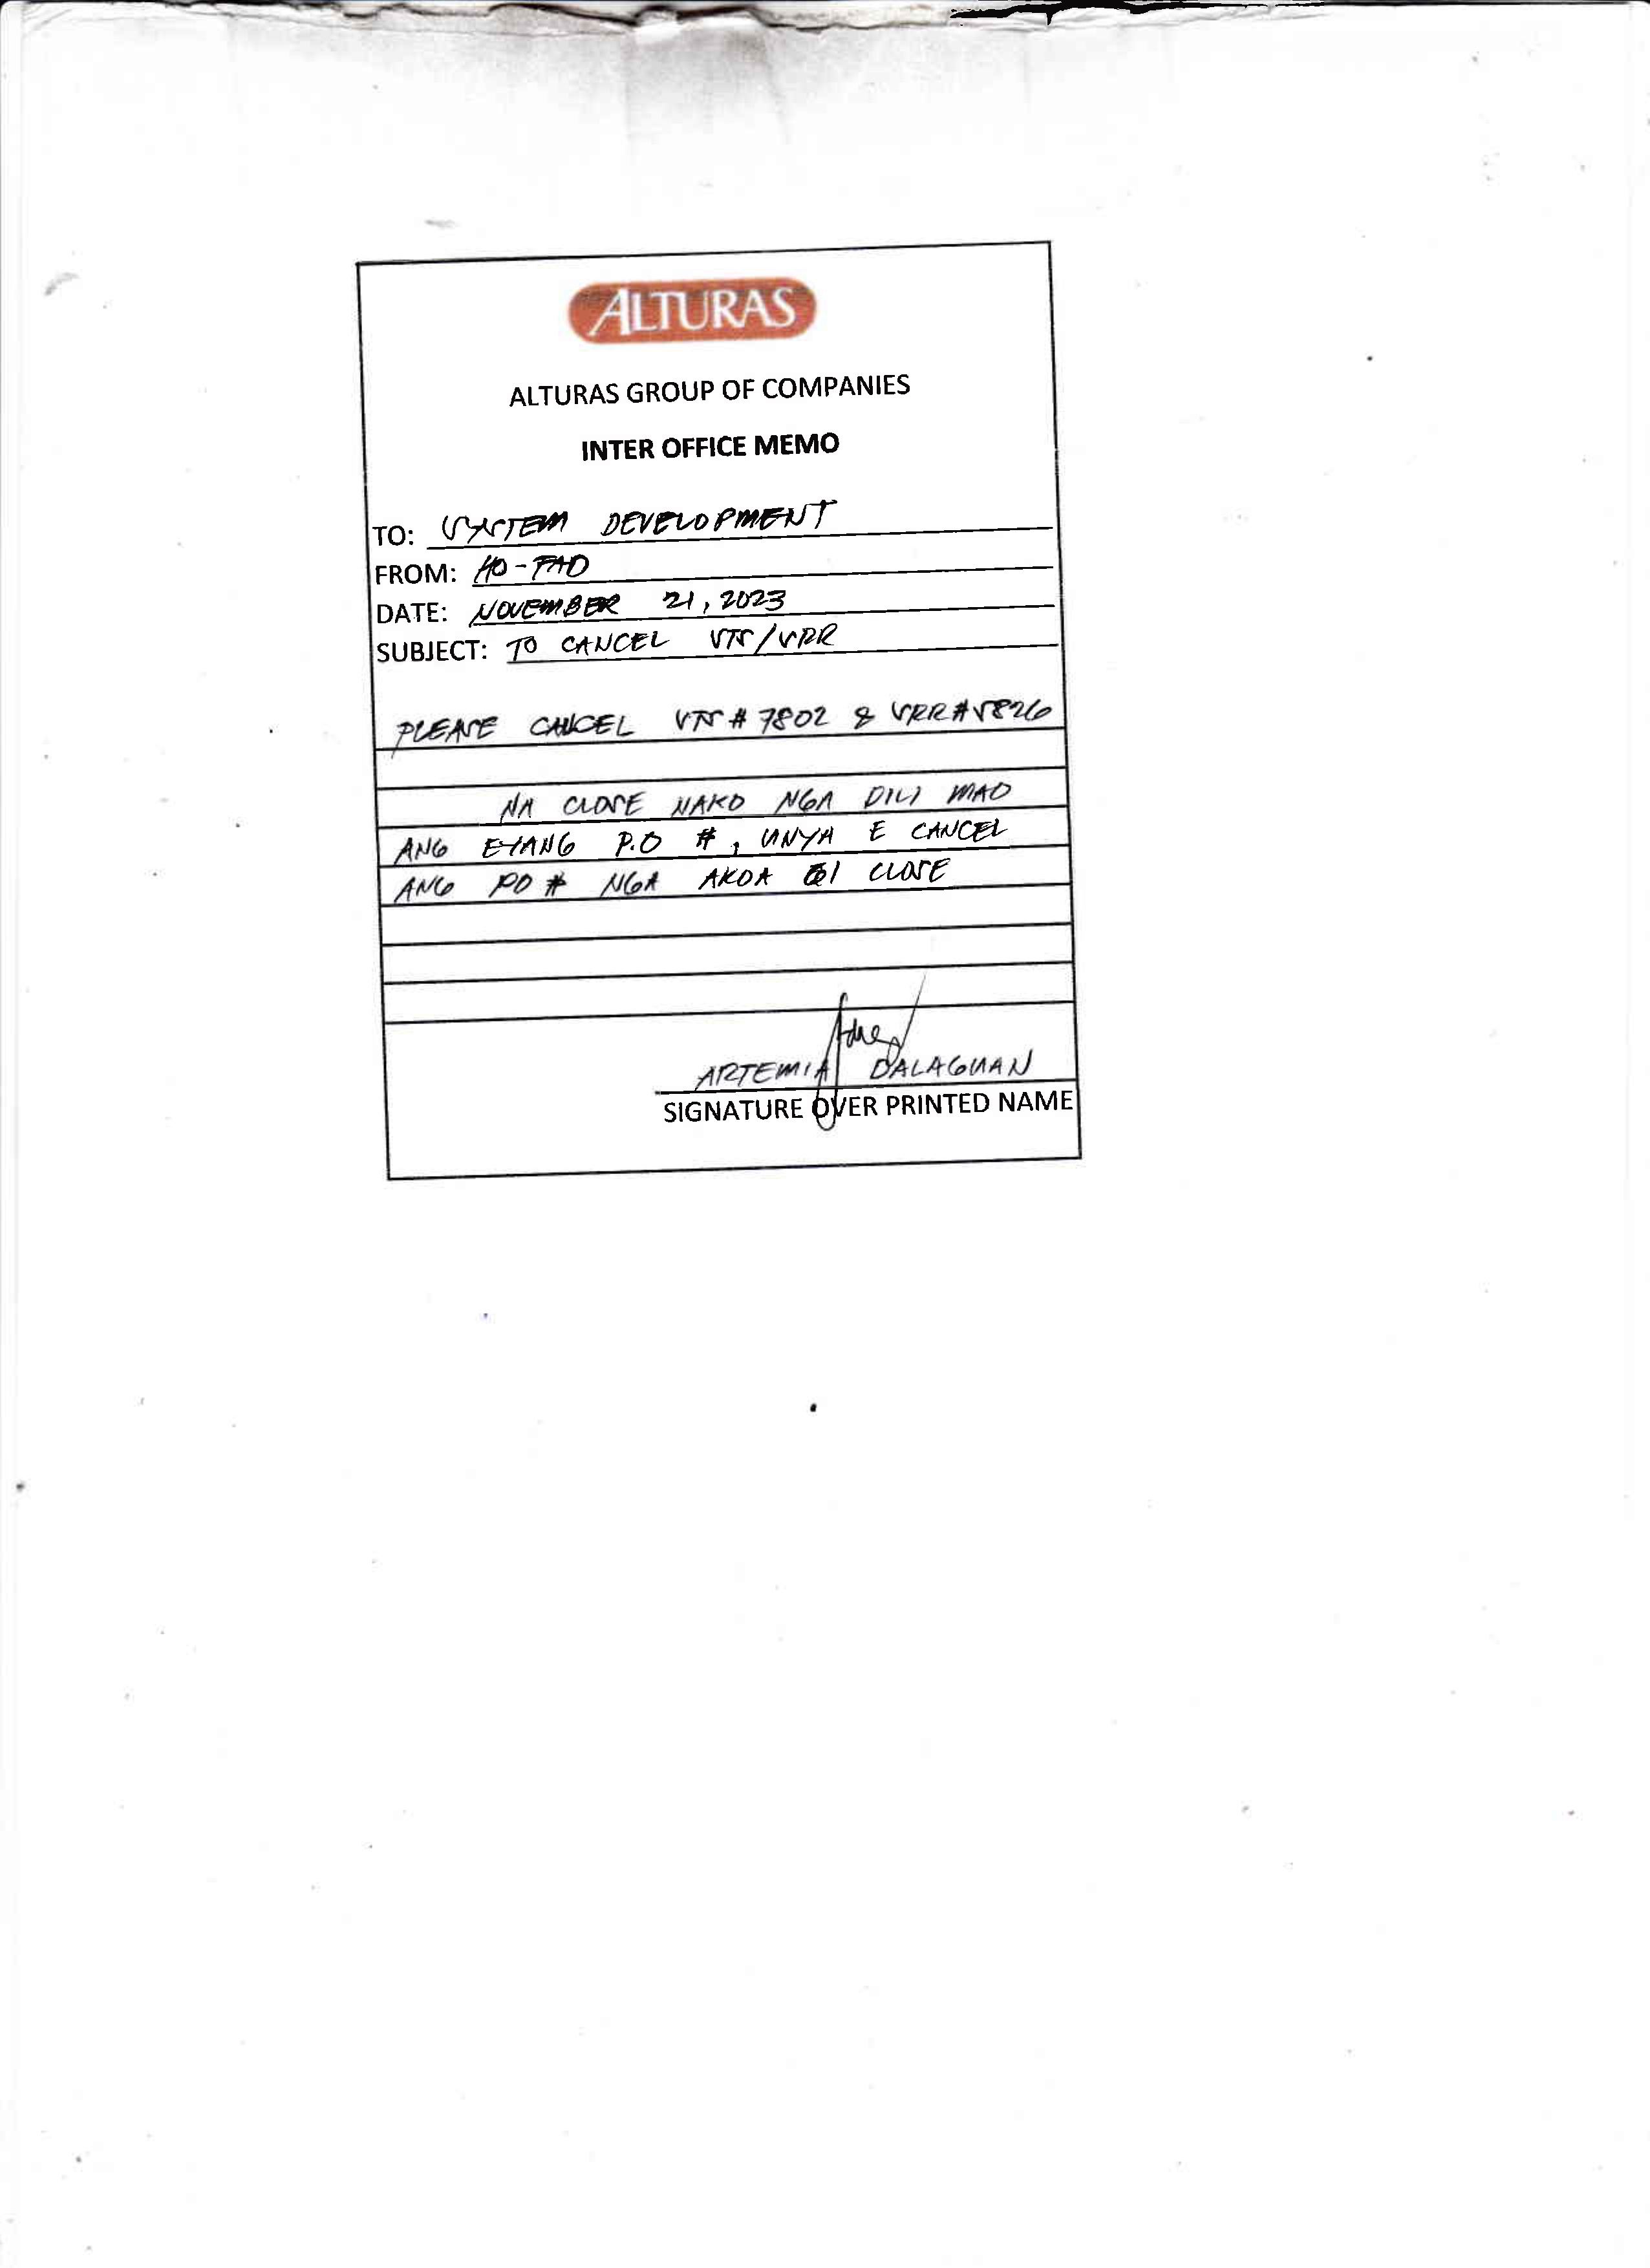 ALTURAS
ALTURAS GROUP OF COMPANIES
INTER OFFICE MEMO
TO: SYSTEM DEVELOPMENT
FROM: HO-FAD
DATE: NOVEMBER 21, 2023
SUBJECT: TO CANCEL VTS/VRR
PLEASE CANCEL VTS # 7802 & VRR#5826
NA CLOSE NAKO NGA DILI MAO
ANG EYANG P.O #, UNYA E CANCEL
ANG PO # NGA AKOA GI CLOSE
ARTEMIA DALAGUAN
SIGNATURE OVER PRINTED NAME